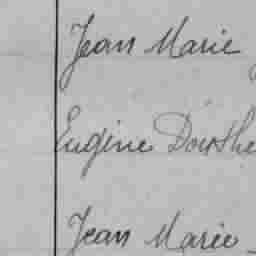 Jean Marie
Eugène Dorothe
Jean Marie